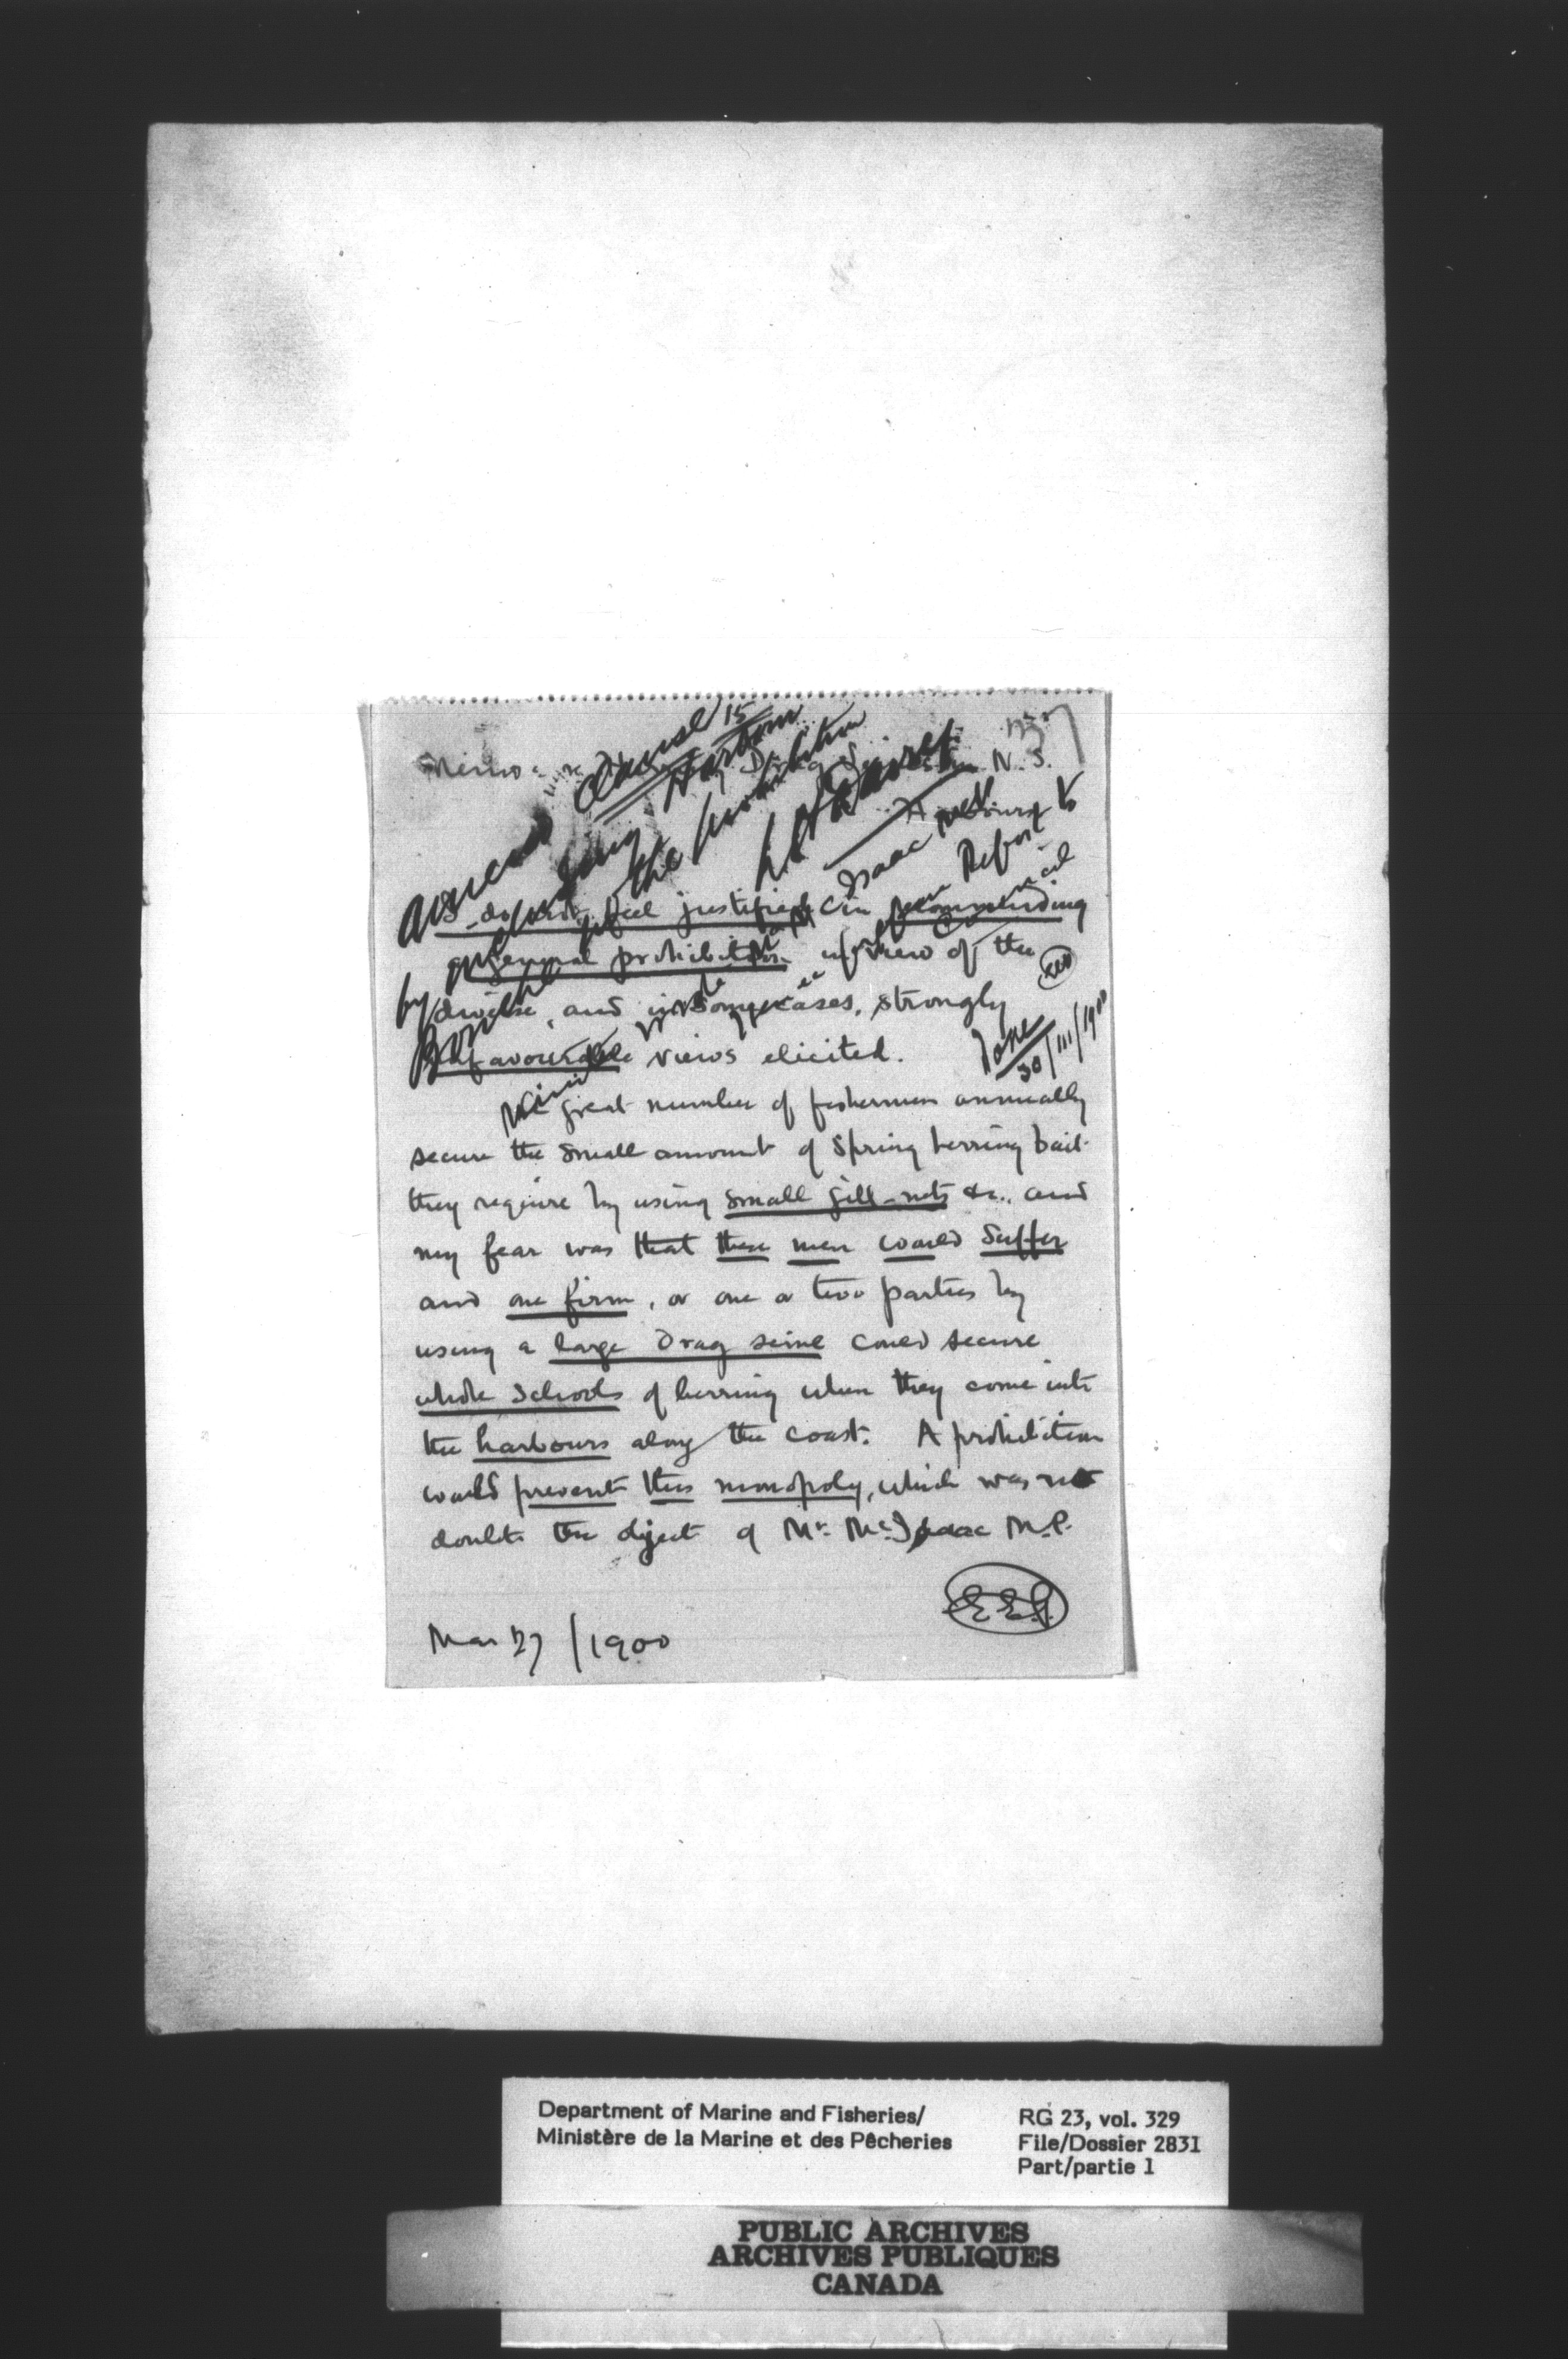 137
Memo re
Drag Seines in N.S.
Harbours
I do not feel justified in recommending
a general prohibition in view of the
diverse, and in some cases, strongly
unfavourable views elicited.
The great number of fishermen annually
secure the small amount of Spring herring bait
they require by using small gill-nets &c., and
my fear was that these men would suffer
and one firm, or one or two parties by
using a large drag seine could secure
whole schools of herring when they come into
the harbours along the coast. A prohibition
would prevent this monopoly, which was no
doubt the object of Mr. McIsaac M.P.
E.E.P.
Mar 27 / 1900
Clause 15
the prohibition
Isaac
Report to
Council
Done
30/III/1900
Department of Marine and Fisheries/
Ministère de la Marine et des Pêcheries
RG 23, vol. 329
File/Dossier 2831
Part/partie 1
PUBLIC ARCHIVES
ARCHIVES PUBLIQUES
CANADA